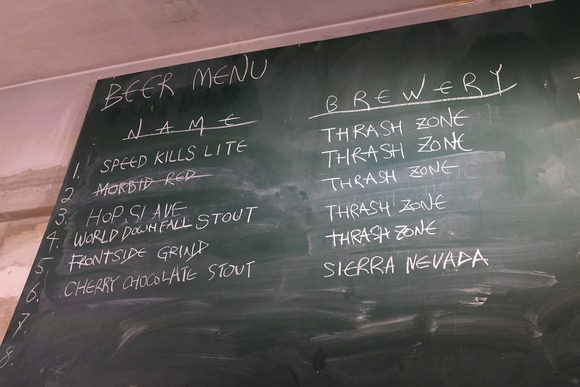 BEER MENU
NAME BREWERY
1. SPEED KILLS LITE THRASH ZONE
2 MORBID RED THRASH ZONE
3. HOP SLAVE THRASH ZONE
4. WORLD DOWNFALL STOUT THRASH ZONE
5. FRONTSIDE GRIND THRASH ZONE
6. CHERRY CHOCOLATE STOUT SIERRA NEVADA
7.
8.